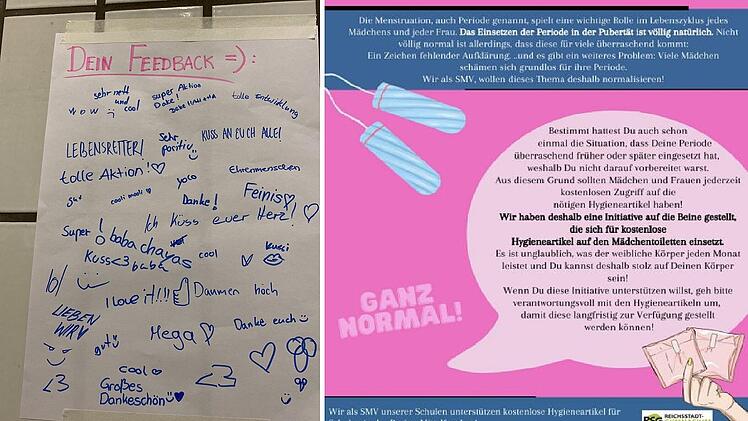 DEIN FEEDBACK =):
sehr nett und cool
super Aktion
Danke!
tolle Entwicklung
wow ;)
LEBENSRETTER!
Sehr positiv
KUSS AN EUCH ALLE!
tolle Aktion!
Ehrenmenschen
gut
cooli mooli
yoco
Danke!
Feinis
Ich küss euer Herz!
Super!
babachayas
Kuss<3 baba
cool
Kussi
I love it!!!
Daumen hoch
LIEBEN WIR
gut
Mega
Danke euch
<3
cool
Großes Dankeschön
<3
Die Menstruation, auch Periode genannt, spielt eine wichtige Rolle im Lebenszyklus jedes
Mädchens und jeder Frau. Das Einsetzen der Periode in der Pubertät ist völlig natürlich. Nicht
völlig normal ist allerdings, dass diese für viele überraschend kommt:
Ein Zeichen fehlender Aufklärung. ..und es gibt ein weiteres Problem: Viele Mädchen
schämen sich grundlos für ihre Periode.
Wir als SMV, wollen dieses Thema deshalb normalisieren!
Bestimmt hattest Du auch schon
einmal die Situation, dass Deine Periode
überraschend früher oder später eingesetzt hat,
weshalb Du nicht darauf vorbereitet warst.
Aus diesem Grund sollten Mädchen und Frauen jederzeit
kostenlosen Zugriff auf die
nötigen Hygieneartikel haben!
Wir haben deshalb eine Initiative auf die Beine gestellt,
die sich für kostenlose
Hygieneartikel auf den Mädchentoiletten einsetzt.
Es ist unglaublich, was der weibliche Körper jeden Monat
leistet und Du kannst deshalb stolz auf Deinen Körper
sein!
Wenn Du diese Initiative unterstützen willst, geh bitte
verantwortungsvoll mit den Hygieneartikeln um,
damit diese langfristig zur Verfügung gestellt
werden können!
GANZ
NORMAL!
Wir als SMV unserer Schulen unterstützen kostenlose Hygieneartikel für
RSG REICHSSTADT-